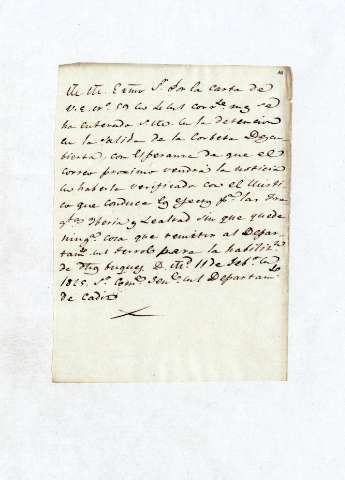 Exmo Sr. Por la carta de
V.E. nº 59 de 4 del corrte. mes se
ha enterado S.M. de la detencion
en la salida de la Corbeta Descu-
bierta, con Esperanza de que el
correo proximo vendrá la noticia
de haberla verificado con el Místi-
co que conduce los efectos pa. las Fra-
gtas. Iberia y Lealtad sin que quede
ningª. cosa que remitir al Depar-
tamto. del Ferrol para la habilitn.
de dhos buques. D. 11 de Febo. de
1825. Sr. Comte. Genl. del Departamto.
de Cadiz